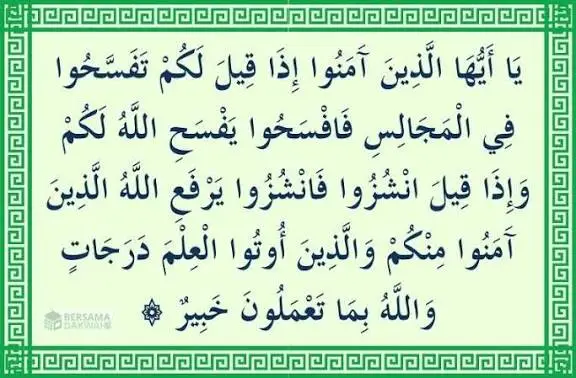 يَا أَيُّهَا الَّذِينَ آَمَنُوا إِذَا قِيلَ لَكُمْ تَفَسَّحُوا
فِي الْمَجَالِسِ فَافْسَحُوا يَفْسَحِ اللَّهُ لَكُمْ
وَإِذَا قِيلَ انْشُزُوا فَانْشُزُوا يَرْفَعِ اللَّهُ الَّذِينَ
آَمَنُوا مِنْكُمْ وَالَّذِينَ أُوتُوا الْعِلْمَ دَرَجَاتٍ
وَاللَّهُ بِمَا تَعْمَلُونَ خَبِيرٌ
BERSAMA
DAKWAH